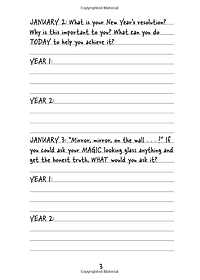 Copyrighted Material
JANUARY 2: What is your New Year's resolution?
Why is this important to you? What can you do
TODAY to help you achieve it?
YEAR 1:
YEAR 2:
JANUARY 3: "Mirror, mirror, on the wall . . . !" If
you could ask your MAGIC looking glass anything and
get the honest truth, WHAT would you ask it?
YEAR 1:
YEAR 2:
3
Copyrighted Material